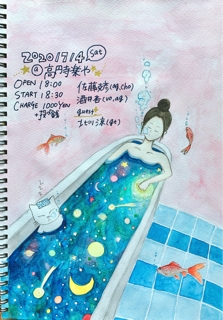 2020/7/4 sat
@高円寺楽や
OPEN 18:00
START 18:30
CHARGE 1000yen
+投げ銭
佐藤克彦
酒井
guest
(gt)